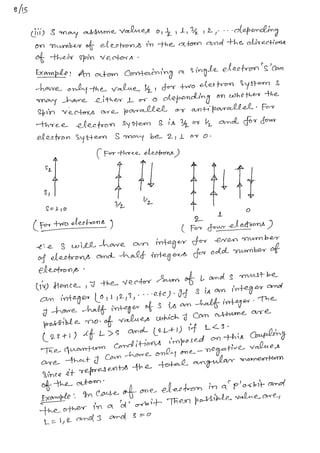 8/15
(iii) S may assume values 0, ½, 1, 3/2, 2, ... depending
on number of electrons in the atom and the directions
of their spin vectors.
Example: An atom containing a single electron 'S' can
have only the value ½, for two electron system S
may have either 1 or 0 depending on whether the
spin vectors are parallel or antiparallel. For
three electron system S is 3/2 or ½ and for four
electron system S may be 2, 1 or 0.
(For three electrons)
S2
S1
S=1,0
3/2
1/2
2
1
0
(For two electrons)
(For four electrons)
i.e S will have an integer for even number
of electrons and half integers for odd number of
electrons.
(iv) Hence, J the vector sum of L and S must be
an integer [0,1,2,3, ... etc). If S is an integer and
J have half integer if S is an half integer. The
possible no. of values which J can assume are
(2S+1) if L>S and (2L+1) if L<S.
The quantum conditions imposed on this coupling
are that J can have only one – negative values
Since it represents the total angular momentum
of the atom.
Example: In case of one electron in a 'p' orbit and
the other in a 'd' orbit. Then possible value are,
L = 1, 2 and 3 and S = 0